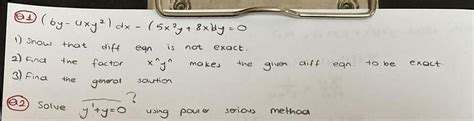 Q1 (6y-4xy²) dx - (5x²y + 8x)dy = 0
1) Show that diff eqn is not exact.
2) Find the factor xⁿyⁿ makes the given diff eqn. to be exact
3) Find the general soution
Q2 Solve y'+y=0 ? using power serious method